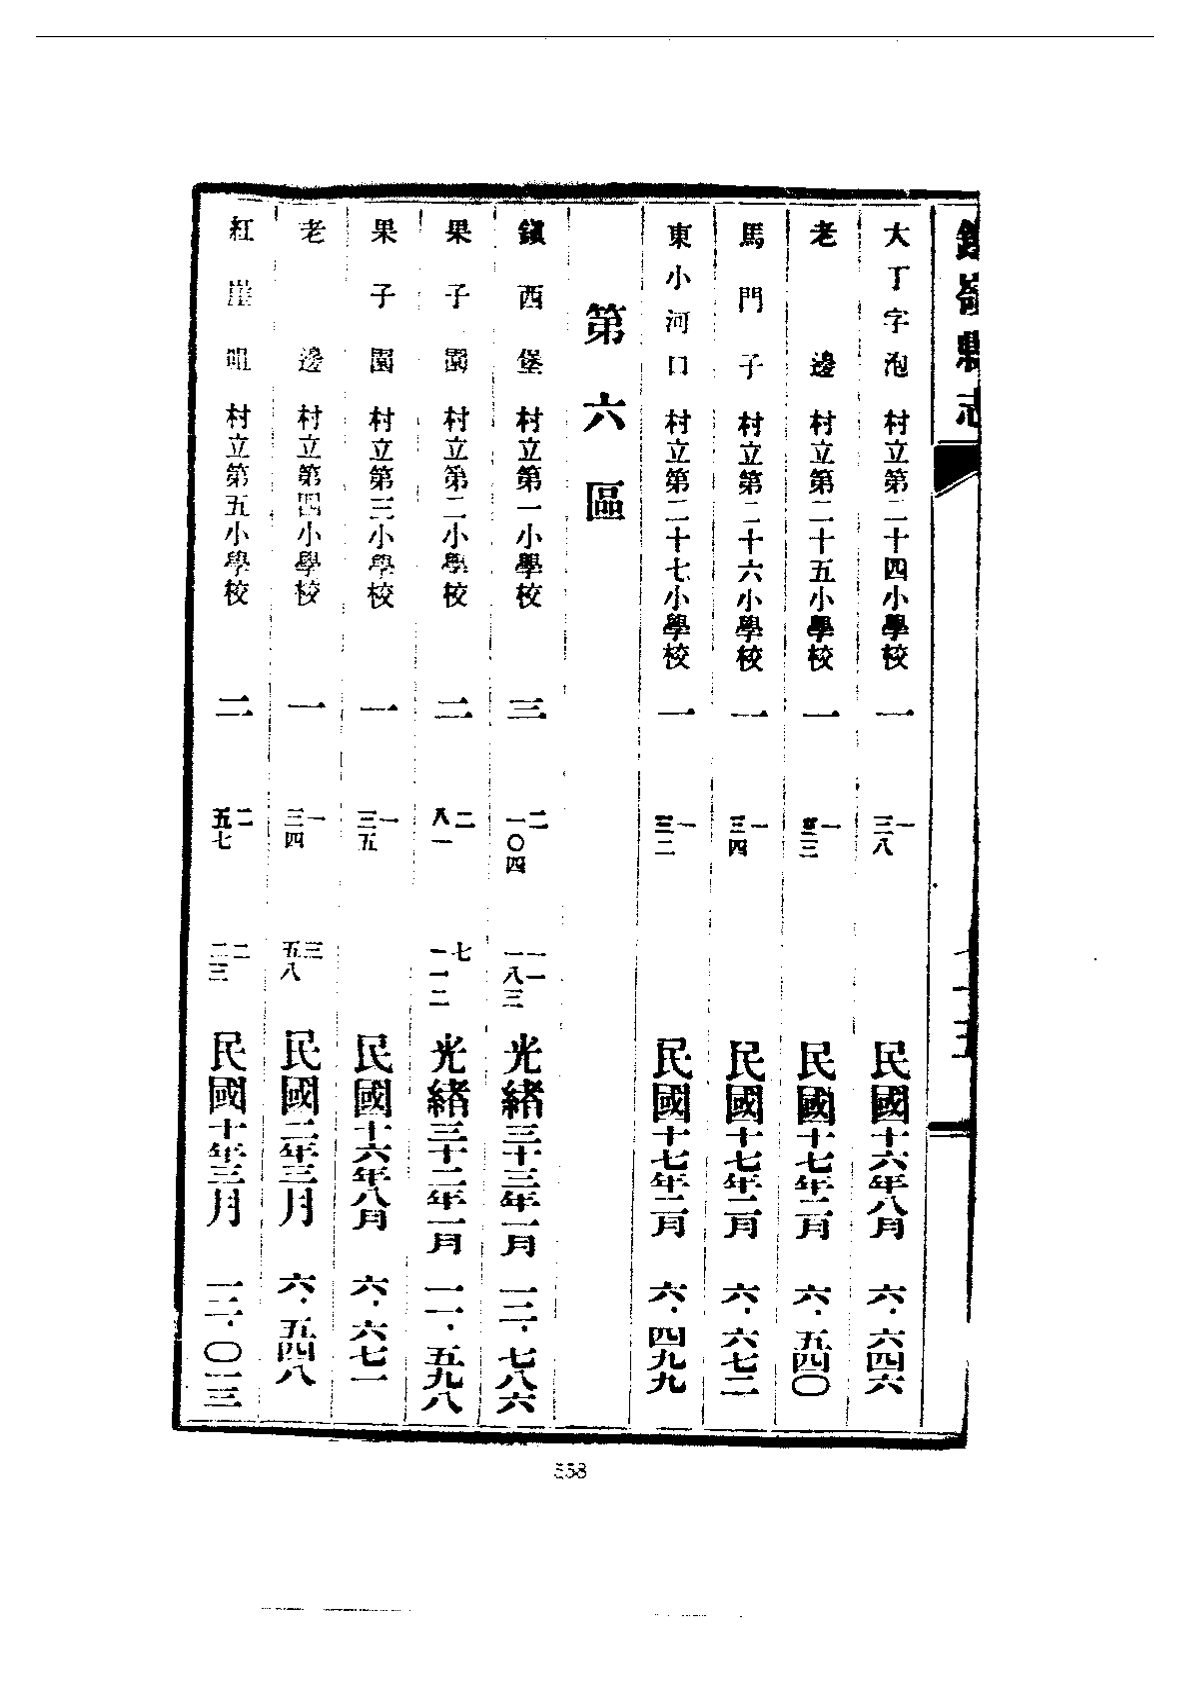 鐵嶺縣志
大丁字泡村立第二十四小學校 一 一 三八 民國十六年八月 六·六四六
老邊村立第二十五小學校 一 一 民國十七年二月 六·五四〇
馬門子村立第二十六小學校 一 一 三四 民國十七年二月 六·六七二
東小河口村立第二十七小學校 一 一 三二 民國十七年二月 六·四九九
第六區
鎮西堡村立第一小學校 三 二 一〇四 一一 一八三 光緒三十三年一月 一二·七八六
果子園村立第二小學校 二 二 八一 七 一一二 光緒三十二年一月 一一·五九八
果子園村立第三小學校 一 一 三五 民國十六年八月 六·六七一
老邊村立第四小學校 一 一 三四 三 五八 民國二年三月 六·五四八
紅崖咀村立第五小學校 二 二 五七 二 二三 民國十年三月 一二·〇一三
558